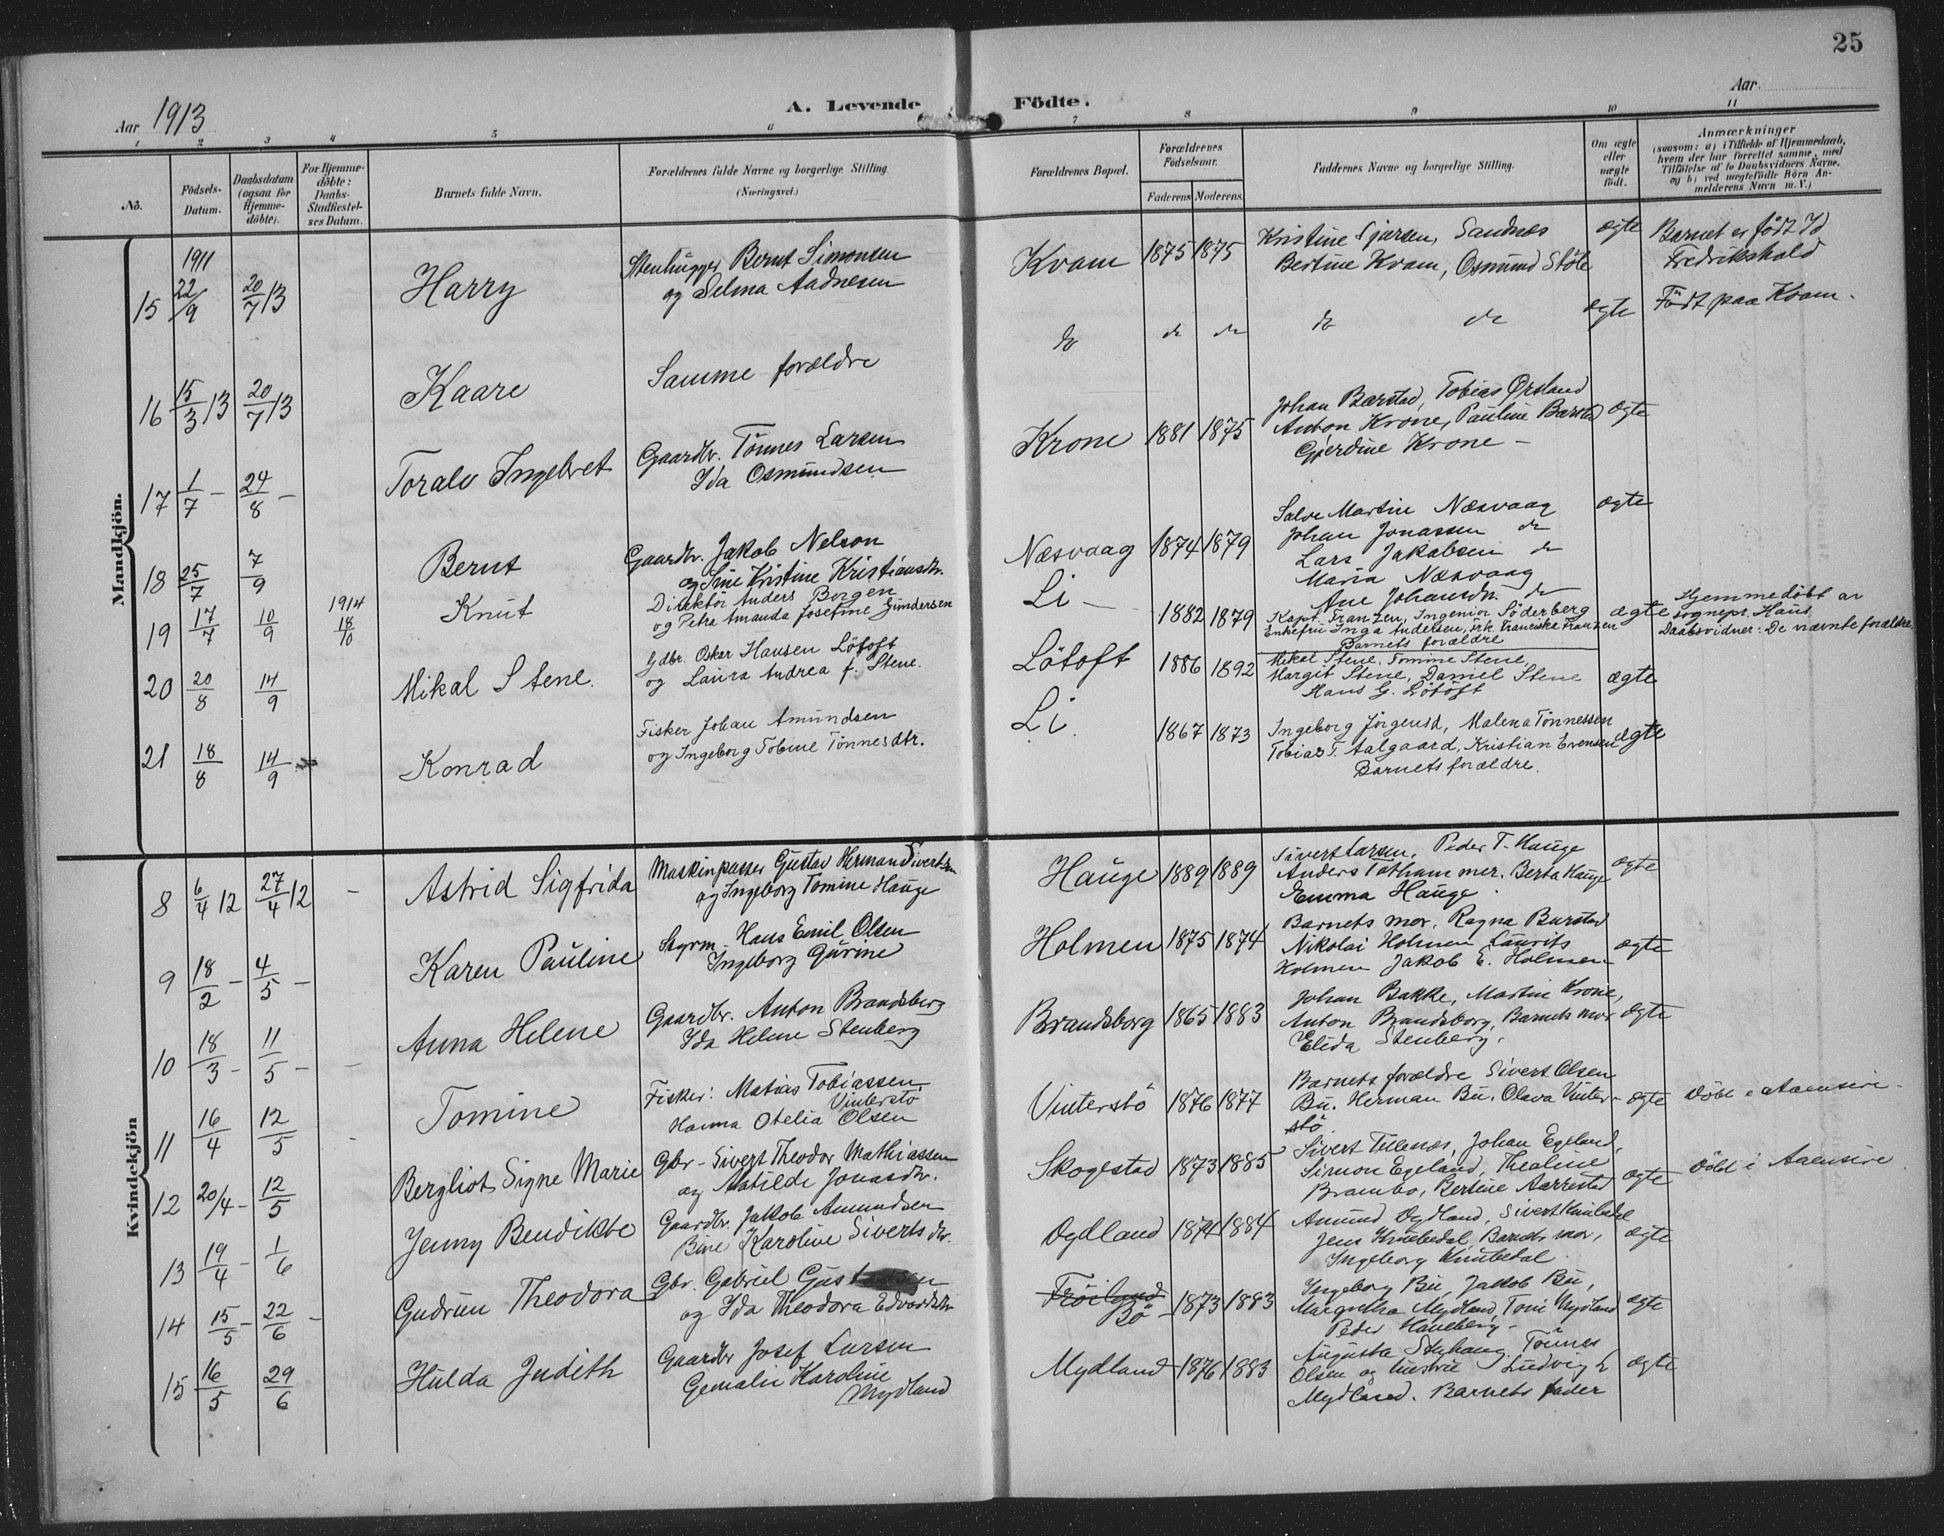 25
Aar 1913
A. Levende Födte.
Aar
1 2 3 4 5 6 7 8 9 10 11
No.
Födsels-Datum.
Daabsdatum (ogsaa for Hjemme-döbte).
For Hjemme-döbte: Daabs-Stadfæstel-ses Datum.
Barnets fulde Navn.
Forældrenes fulde Navne og borgerlige Stilling (Næringsvei.)
Forældrenes Bopæl.
Forældrenes Födselsaar.
Faderens Moderens
Faddernes Navne og borgerlige Stilling.
Om ægte eller uægte födt.
Anmærkninger
(saasom: a) i Tilfælde af Hjemmedaab, hvem der har forrettet samme, med Tilföielse af to Daabsvidners Navne, og b) ved uægtefödte Börn Anmelderens Navn m. V.)
Mandkjön.
15 1911 22/9 20/7 13 Harry
Stenhugger Bernt Simonsen
og Selma Aadnesen
Kvam 1875 1875
Kristine Sjursen, Sandnes
Bertine Kvam, Osmund Støle
ægte
Barnet er født Id
Fredrikshald
16 15/3 13 20/7 13 Kaare
Samme forældre
do do do do do
ægte
Födt paa Kvam.
17 1/7 - 24/8 - Toralv Ingebret
Gaardbr. Tönnes Larsen
Ida Osmundsen
Krone 1881 1875
Johan Barstad, Tobias Ørsland
Anton Krone, Pauline Barstad
Gjerdine Krone -
ægte
18 25/7 7/9 Bernt
Gaardbr. Jakob Nelson
og Sine Kristine Kristiansdtr.
Næsvaag 1874 1879
Salve Martin Næsvaag
Johan Jonassen do
Lars Jakobsen do
Maria Næsvaag
Ane Johansdtr. do
ægte
19 17/7 10/9 1914 18/10 Knut
Direktör Anders Borgen
og Petra Amanda Josefine Gundersen
Li - 1882 1879
Kapt. Franzen, Ingeniör Söderberg
Enkefru Inga Andersen, frk. Franciska Franzen
Barnets forældre
ægte
Hjemmedöbt av
sognepr. Haus
Daabsvidner: De nævnte forældre.
20 20/8 14/9 Mikal Stene.
Gdbr. Oskar Hansen Lötoft
og Laura Andrea f. Stene.
Lötoft 1886 1892
Mikal Stene, Tomine Stene,
Margit Stene, Daniel Stene
Hans G. Lötoft
ægte
21 18/8 14/9 Konrad
Fisker Johan Amundsen
og Ingeborg Tobine Tönnesdtr.
Li. 1867 1873
Ingeborg Jörgensd, Malena Tönnessen
Tobias T. Aalgaard, Kristian Evensen
Barnets forældre.
ægte
Kvindekjön
8 6/4 12 27/4 12 - Astrid Sigfrida
Maskinpasser Gustav Herman Sivertsen
og Ingeborg Tomine Hauge
Hauge 1889 1889
Sivert Larsen, Peder T. Hauge
Anders Tothammer. Berta Hauge
Emma Hauge.
ægte
9 18/2 - 4/5 - Karen Pauline
Styrm. Hans Emil Olsen
Ingeborg Gurine
Holmen 1875 1874
Barnets mor, Ragna Burstad
Nikolai Holmen Laurits
Holmen Jakob E. Holmen
ægte
10 18/3 - 11/5 - Anna Helene
Gaardbr. Anton Brandsberg
Ida Helene Stenberg
Brandsborg 1865 1883
Johan Bakke, Martin Krone,
Anton Brandsborg, Barnets mor
Elida Stenberg.
ægte
11 16/4 12/5 - Tomine
Fisker: Matias Tobiassen
Vinterstö
Hanna Otelia Olsen
Vinterstö 1876 1877
Barnets forældre Sivert Olsen
Bu. Herman Bu. Olava Vinter-
stö
ægte
12 20/4 - 12/5 Bergliot Signe Marie
Gbr - Sivert Theodor Mathiassen
og Matilde Jonasdtr.
Skogestad 1873 1885
Sivert Tillenæs, Johan Egeland,
Simon Egeland, Thealine
Brambo, Bertine Aarrestad
ægte
13 19/4 - 1/6 Jenny Bendikte
Gaardbr. Jakob Amundsen
Bine Karoline Sivertsdtr.
Dydland 1874 1884
Amund Dydland, Sivert Knibedal
Jens Knubedal, Barnets mor,
Ingeborg Knubedal
ægte
14 15/5 - 22/6 - Gudrun Theodora
Gbr. Gabriel
og Ida Theodora Edvardsdtr
Fröiland
Bö - 1873 1883
Ingeborg Bu, Jakob Bu,
Margretha Mydland, Toni Mydland
Peder Haneberg -
ægte
15 16/5 29/6 Hulda Judith
Gaardbr Josef Larsen
Karoline
Mydland
Mydland 1876 1883
Augusta Tönnes
Olsen og hustru Ludvig L
Mydland. Barnets fader
ægte